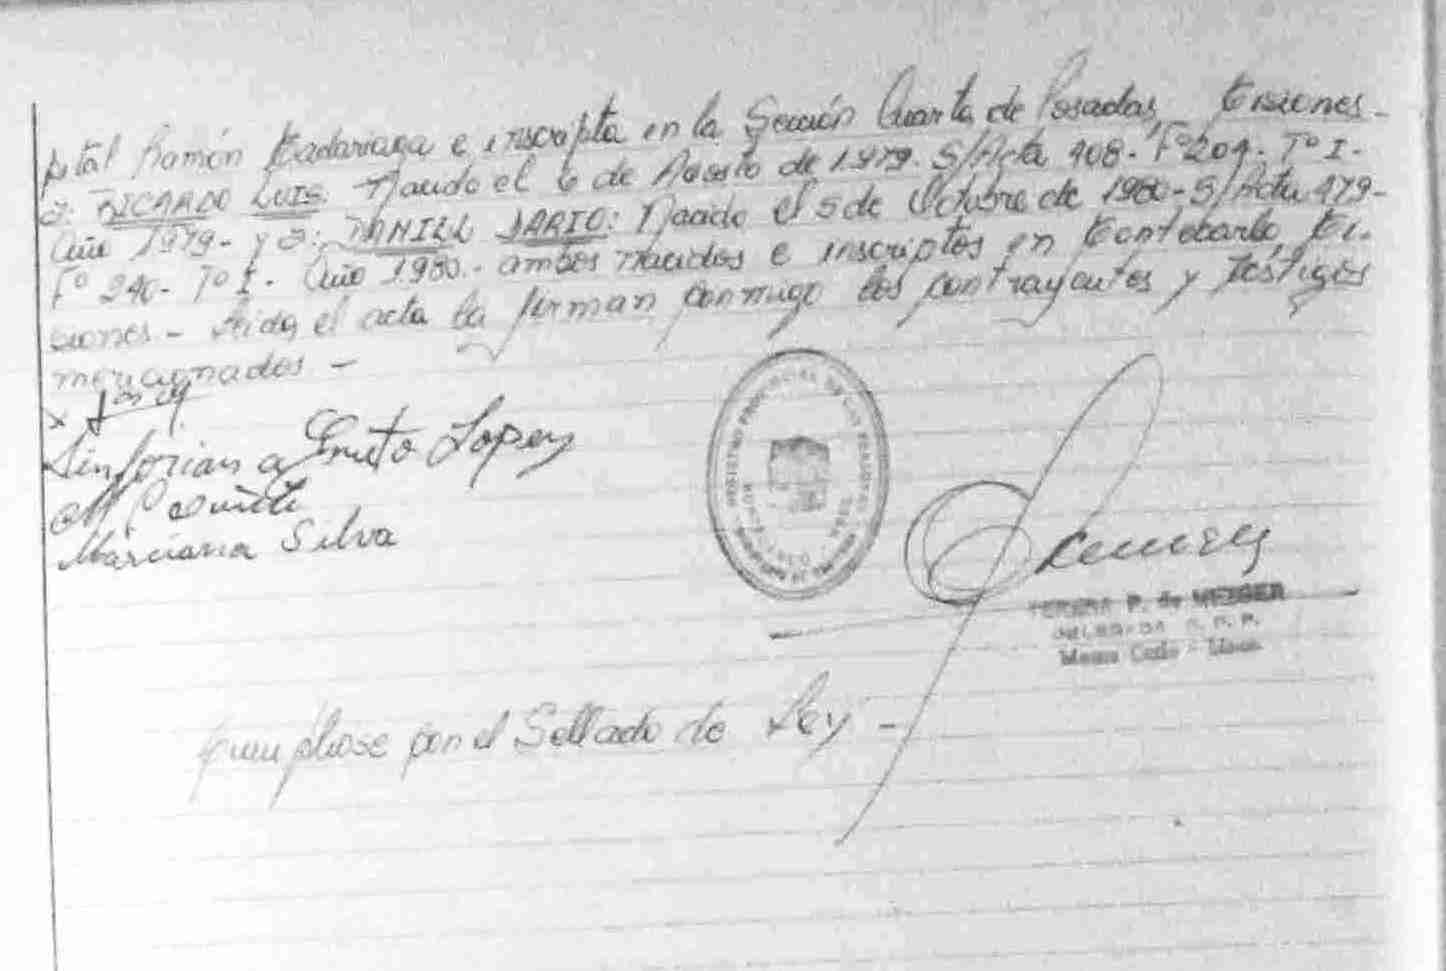 pital Ramón Madariaga e inscripta en la Sección Cuarta de Posadas, Misiones.-
2: RICARDO LUIS: Nacido el 6 de Agosto de 1979. S/Acta 408. Fº 204. Tº I.
Año 1979- y 3: DANIEL DARIO: Nacido el 5 de Octubre de 1980- S/Acta 479-
Fº 240- Tº I. Año 1980.- ambos nacidos e inscriptos en Montecarlo, Mi-
siones.- Leída el acta la firman conmigo los contrayentes y testigos
mencionados.-
x
Sinforiana Lopez
M.
Marciana Silva
REGISTRO PROVINCIAL DE LAS PERSONAS
P. de METZGER
DELEGADA R. P. P.
Monte Carlo - Mnes.
Cumpliose con el Sellado de Ley -